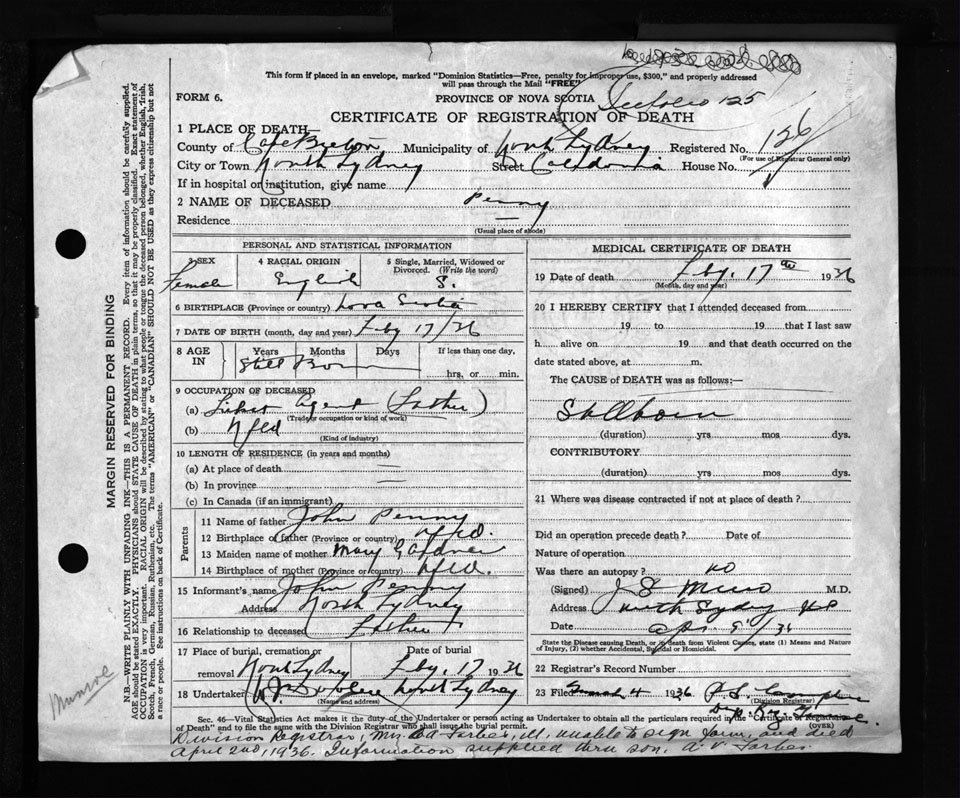 This form if placed in an envelope, marked "Dominion Statistics—Free, penalty for improper use, $300," and properly addressed
will pass through the Mail "FREE"
FORM 6. PROVINCE OF NOVA SCOTIA See folio 125
CERTIFICATE OF REGISTRATION OF DEATH
1 PLACE OF DEATH
County of Cape Breton Municipality of North Sydney Registered No. 126
(For use of Registrar General only)
City or Town North Sydney Street Caledonia House No.
If in hospital or institution, give name
2 NAME OF DECEASED Penny
Residence —
(Usual place of abode)
PERSONAL AND STATISTICAL INFORMATION
3 SEX 4 RACIAL ORIGIN 5 Single, Married, Widowed or
Divorced. (Write the word)
Female English S.
6 BIRTHPLACE (Province or country) Nova Scotia
7 DATE OF BIRTH (month, day and year) Feby 17/36
8 AGE IN Years Months Days If less than one day,
Still Born hrs. or min.
9 OCCUPATION OF DECEASED
(a) Ticket Agent (Father)
(Trade or occupation or kind of work)
(b) Nfld
(Kind of industry)
10 LENGTH OF RESIDENCE (in years and months)
(a) At place of death —
(b) In province —
(c) In Canada (if an immigrant)
Parents
11 Name of father John Penny
12 Birthplace of father (Province or country) Nfld.
13 Maiden name of mother Mary Gardner
14 Birthplace of mother (Province or country) Nfld.
15 Informant's name John Penny
Address North Sydney
16 Relationship to deceased Father
17 Place of burial, cremation or Date of burial
removal North Sydney Feby. 17 1936
18 Undertaker North Sydney
(Name and address)
MEDICAL CERTIFICATE OF DEATH
19 Date of death Feby. 17th 1936
(Month, day and year)
20 I HEREBY CERTIFY that I attended deceased from
19 to 19 that I last saw
h alive on 19 and that death occurred on the
date stated above, at m.
The CAUSE of DEATH was as follows:—
Stillborn
(duration) yrs mos dys.
CONTRIBUTORY
(duration) yrs. mos. dys.
21 Where was disease contracted if not at place of death?
Did an operation precede death? Date of
Nature of operation
Was there an autopsy? no
(Signed) J S Munro M.D.
Address North Sydney NS
Date Apr 9/36
State the Disease causing Death, or in death from Violent Causes, state (1) Means and Nature
of Injury, (2) whether Accidental, Suicidal or Homicidal.
22 Registrar's Record Number
23 Filed March 4 1936
(Division Registrar)
(OVER)
Sec. 46—Vital Statistics Act makes it the duty of the Undertaker or person acting as Undertaker to obtain all the particulars required in the "Certificate of Registration
of Death" and to file the same with the Division Registrar who shall issue the burial permit.
Division Registrar, Mrs. Ed Forbes, ill, unable to sign form, and died
April 2nd, 1936. Information supplied thru son, A. V. Forbes.
MARGIN RESERVED FOR BINDING
N.B.—WRITE PLAINLY WITH UNFADING INK—THIS IS A PERMANENT RECORD. Every item of information should be carefully supplied.
AGE should be stated EXACTLY. PHYSICIANS should STATE CAUSE OF DEATH in plain terms, so that it may be properly classified. Exact statement of
OCCUPATION is very important. RACIAL ORIGIN will be described by stating to what people or tongue the deceased person belonged, whether English, Irish,
Scotch, French, German, Russian, Ruthenian, etc. The terms "AMERICAN" or "CANADIAN" SHOULD NOT BE USED as they express citizenship but not
a race or people. See instructions on back of Certificate.
Munroe